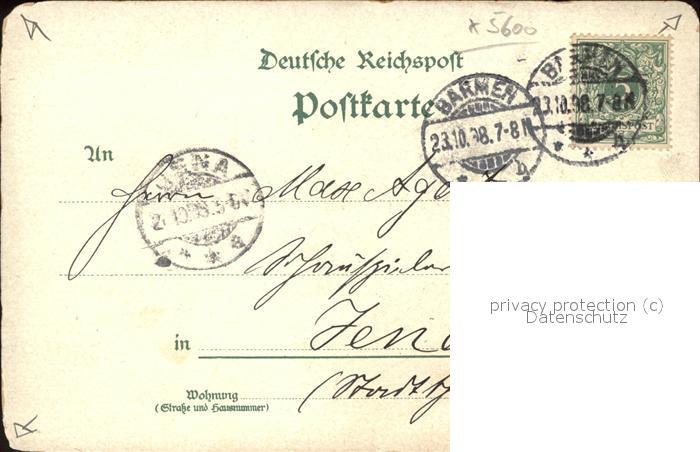 * 5600
Deutsche Reichspost
Postkarte
BARMEN
23.10.98.7-8N
b
BARMEN
23.10.98.7-8N
5
An
JENA
Herrn Max
Schauspieler
in Jena
Wohnung
(Straße und Hausnummer)
privacy protection (c)
Datenschutz